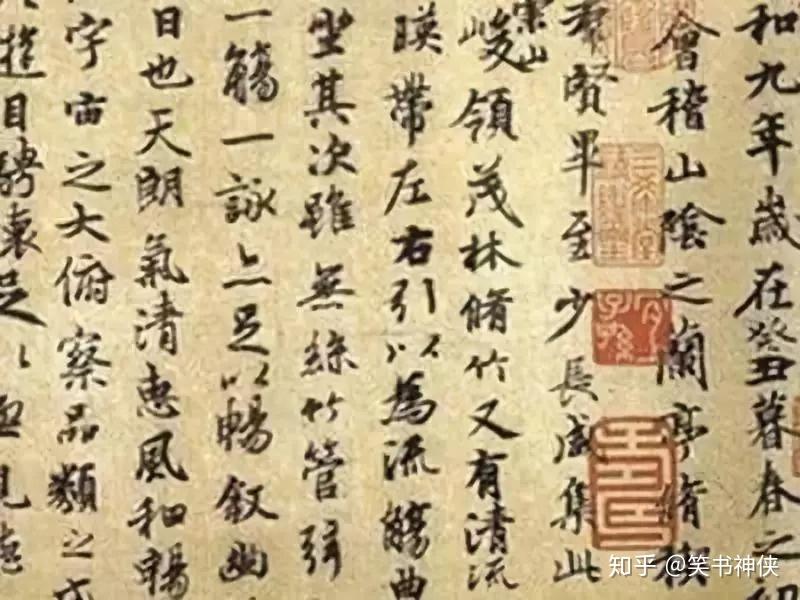 和九年歲在癸丑暮春之初
會稽山陰之蘭亭脩禊
羣賢畢至少長咸集此
崇山
峻領茂林脩竹又有清流
暎帶左右引以為流觴曲
坐其次雖無絲竹管弦
一觴一詠亦足以暢敘幽
日也天朗氣清惠風和暢
宇宙之大俯察品類之盛
遊目騁懷足以極視聽
知乎 @笑书神侠